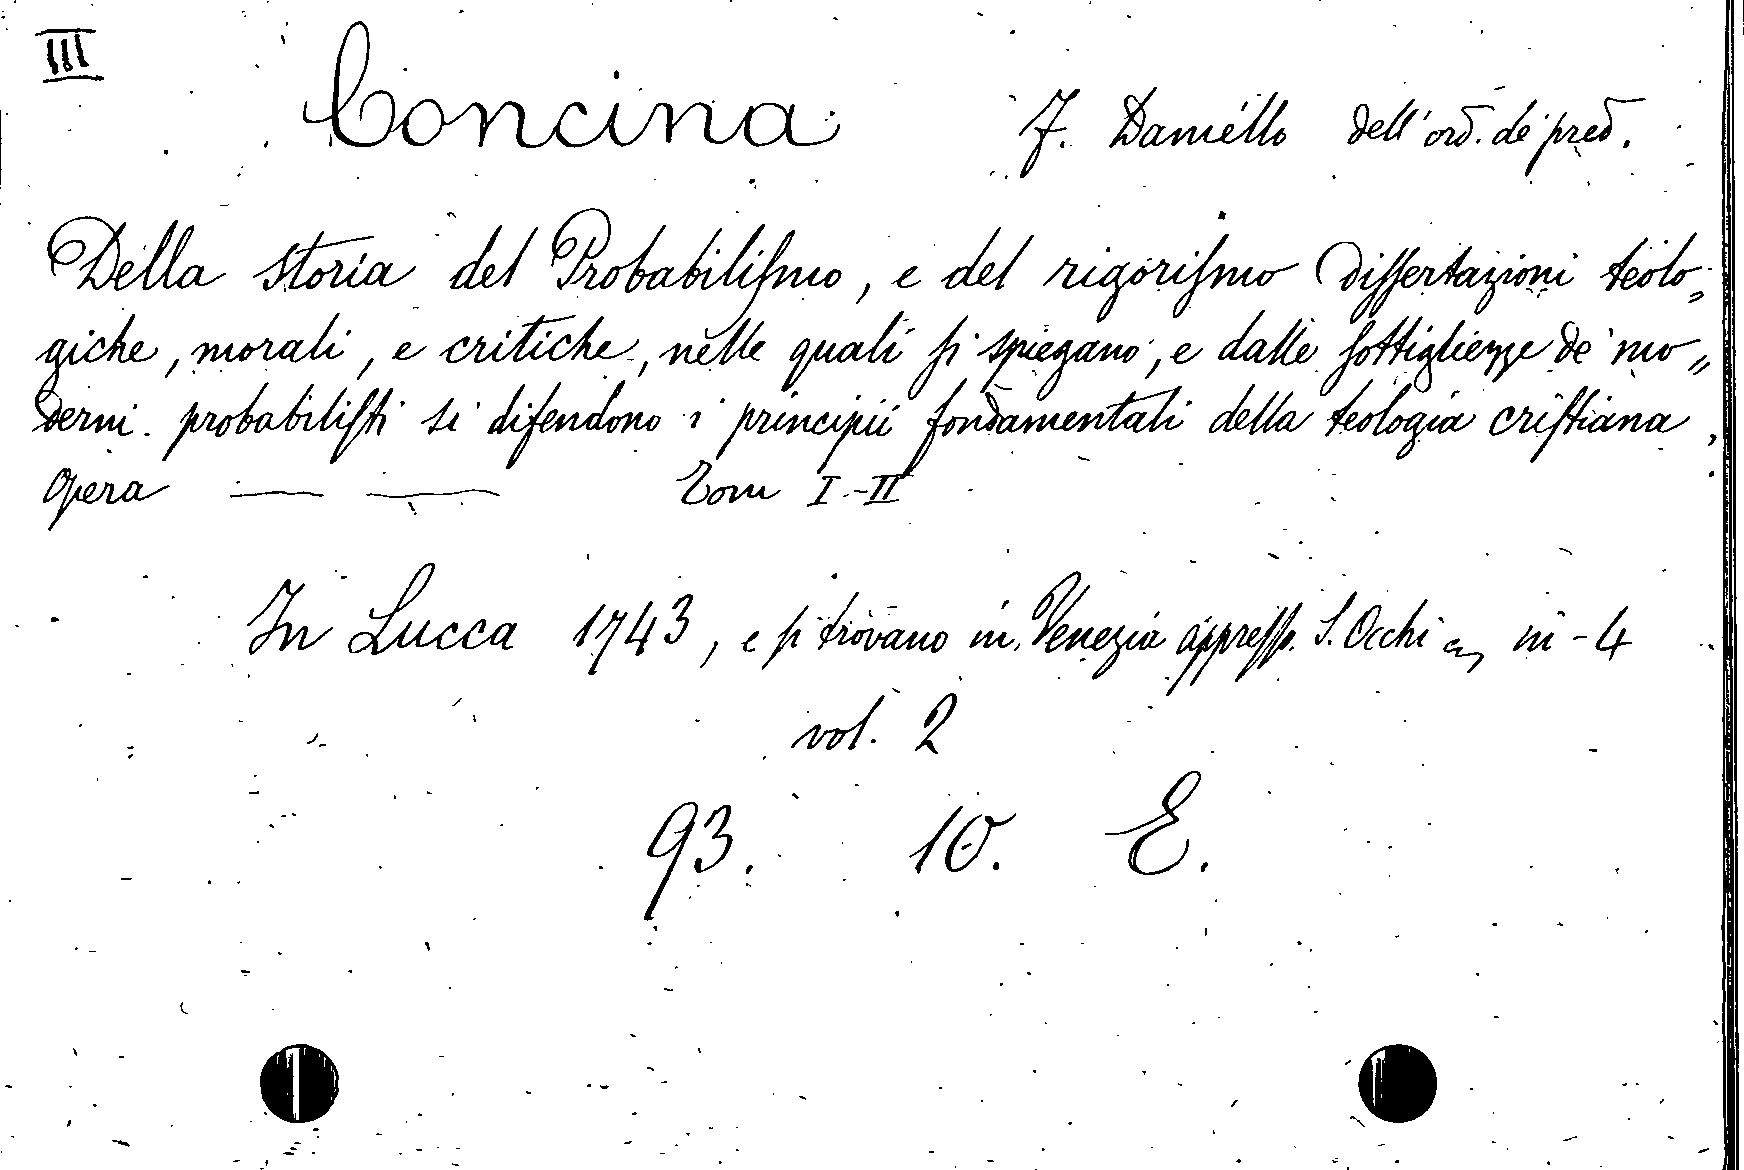 III
Concina F. Daniello dell'ord. de' pred.
Della storia del Probabiliſmo, e del rigoriſmo diſſertazioni teolo„
giche, morali, e critiche, nelle quali ſi spiegano, e dalle ſottigliezze de' mo„
derni probabiliſti si difendono i principii fondamentali della teologia criſtiana,
Opera — — Tom I-II
In Lucca 1743, e ſi trovano in Venezia appreſſo. S. Occhi in-4
vol. 2
93. 10. E.